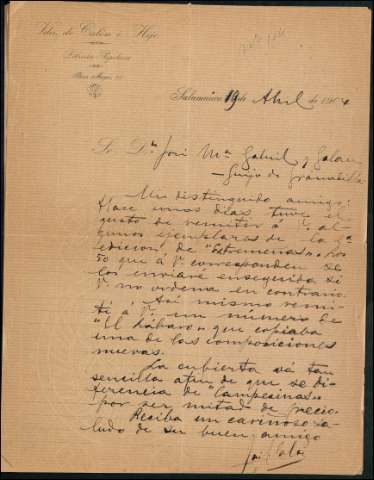 Vda. de Calón é Hijo
Librería Papelería
Plaza Mayor
Salamanca 19 de Abril de 1904
Sr. Dn. José Ma. Gabriel y Galan
Guijo de Granadilla
Mi distinguido amigo:
Hace unos dias tuve el
gusto de remitir á V. al-
gunos ejemplares de la 2ª
edicion de "Extremeñas". Los
50 que á V. corresponden se
los enviaré enseguida si
V. no ordena en contrario.
Asi mismo remi-
ti á V. un numero de
"El Lábaro" que copiaba
una de las composiciones
nuevas.
La cubierta va tan
sencilla afin de que se di-
ferencia de "Campesinas"
por ser mitad de precio.
Reciba un cariñoso sa-
ludo de su buen amigo